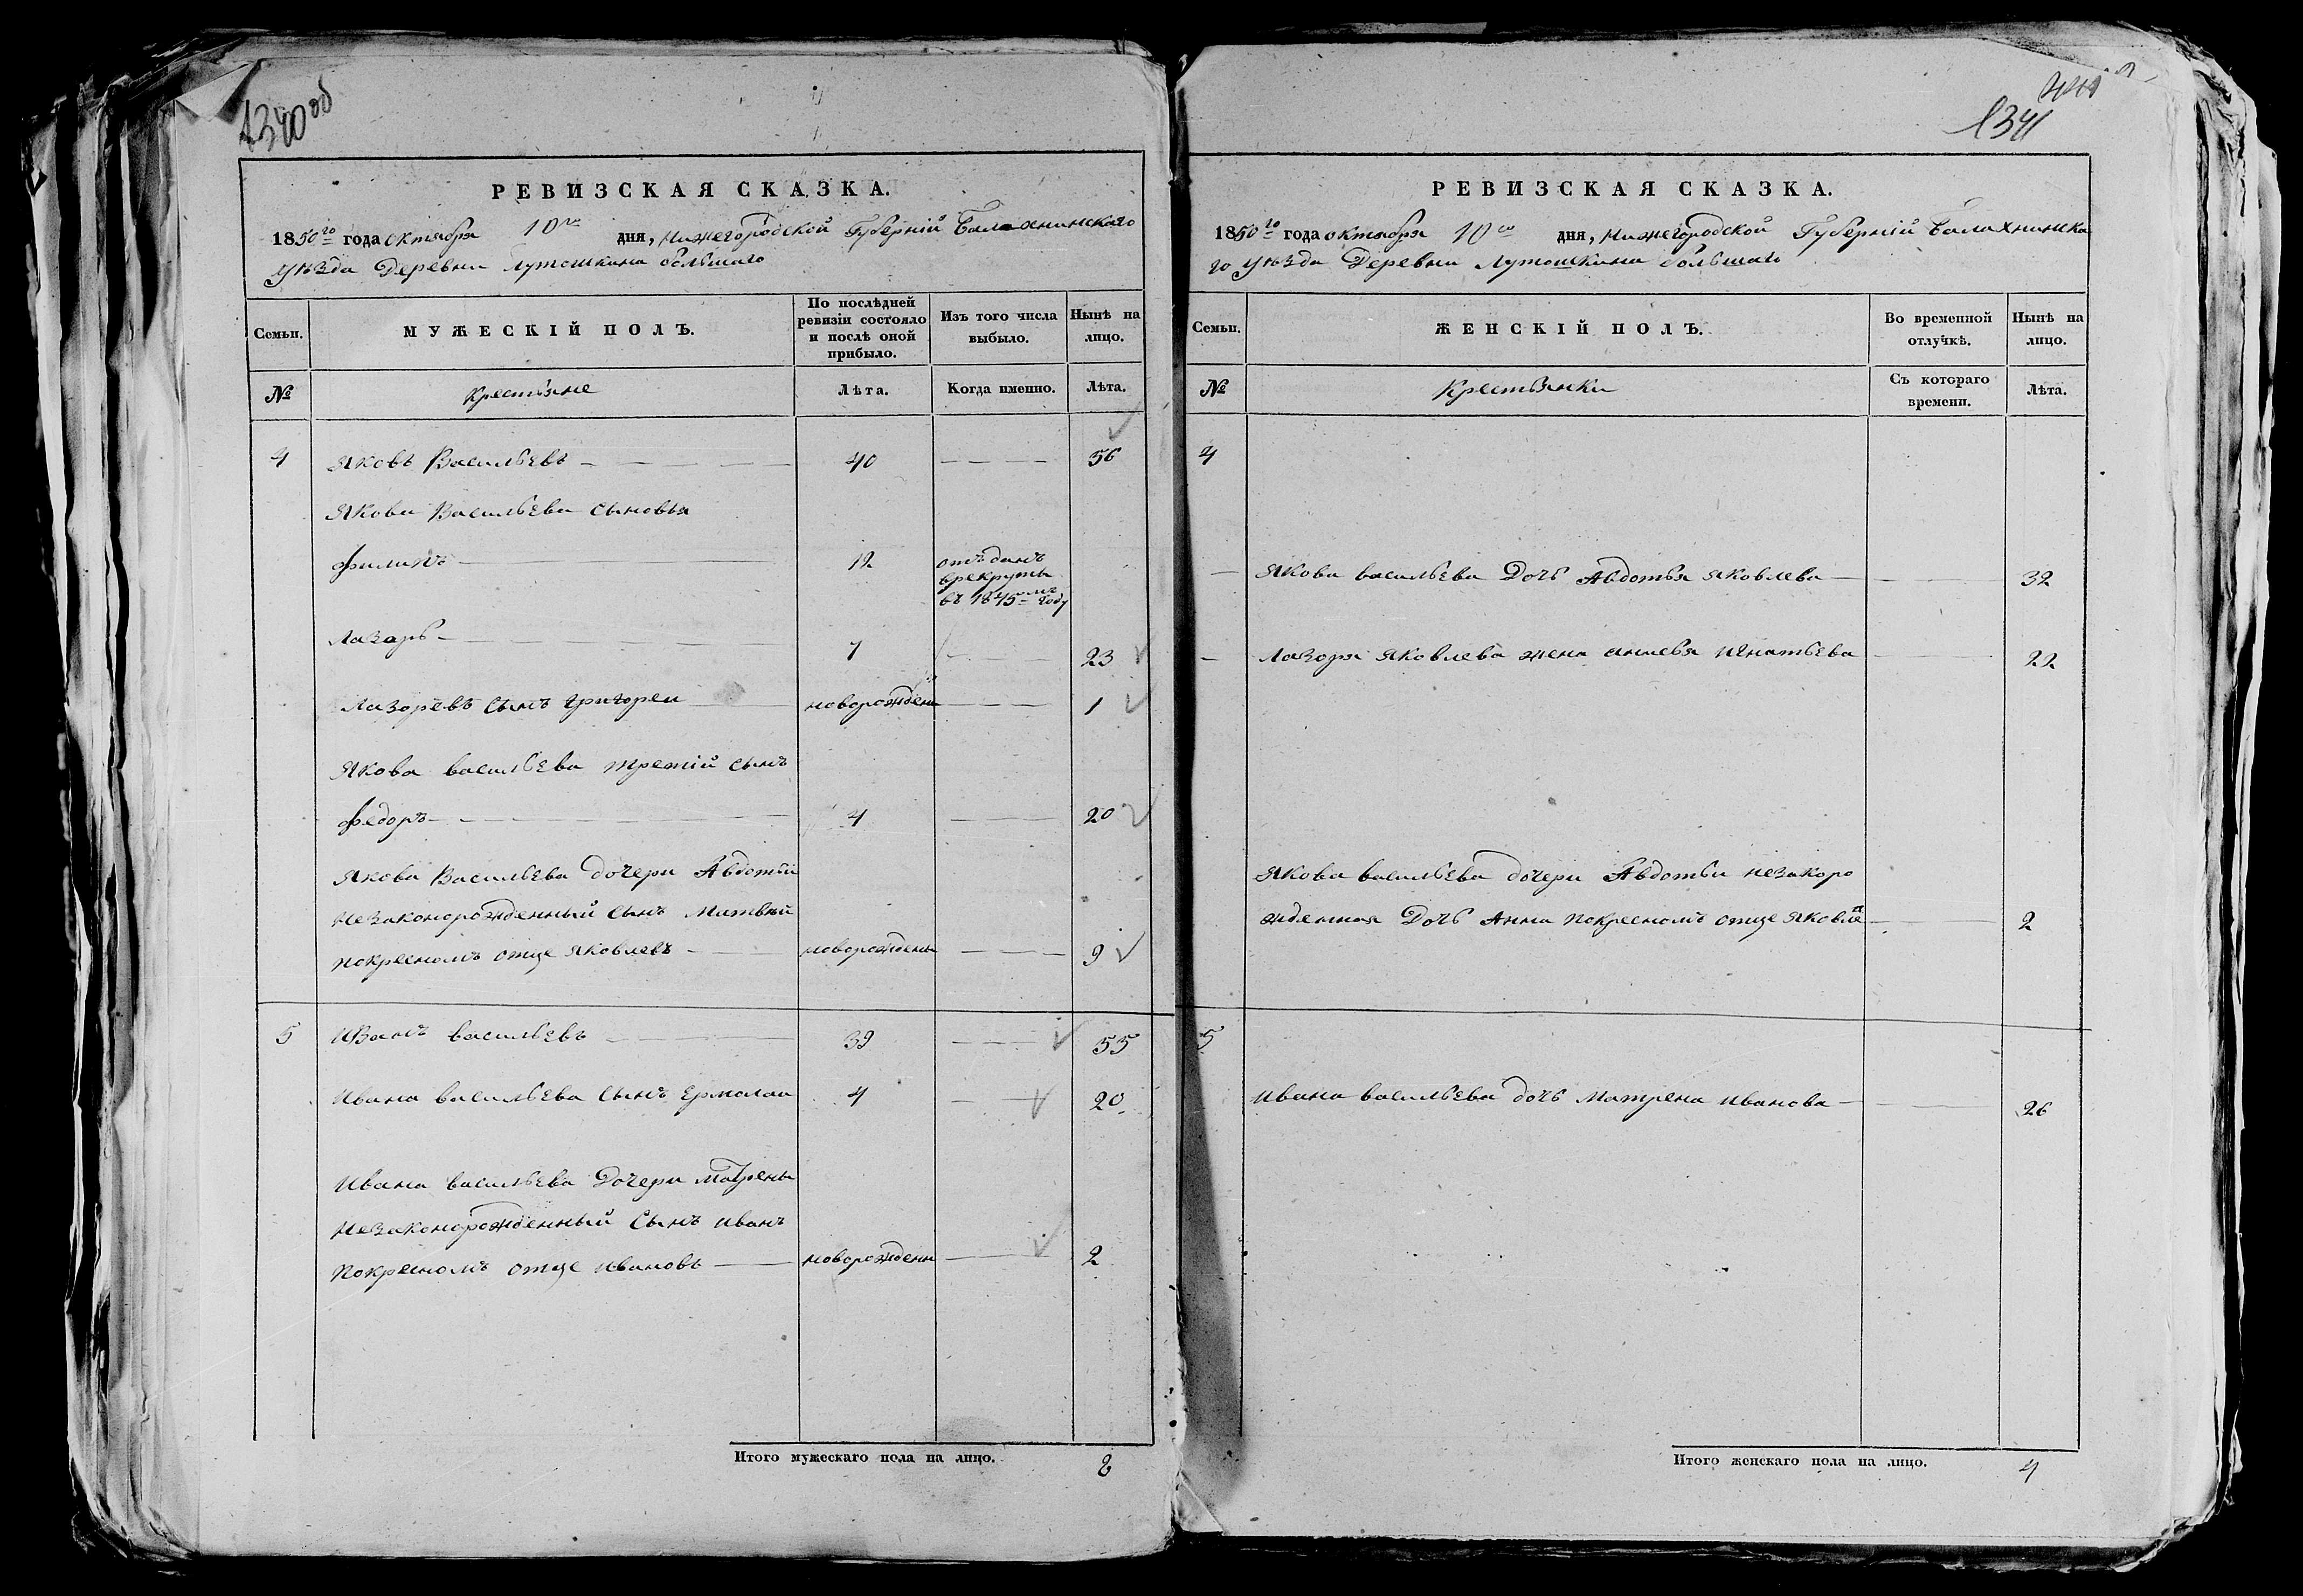 1340 об
РЕВИЗСКАЯ СКАЗКА.
1850го года октября 10го дня, Нижегородской Губерній Балахнинскаго
уѣзда Деревни Лутошкина большаго
Семьи.
МУЖЕСКІЙ ПОЛЪ.
По послѣдней ревизіи состояло и послѣ оной прибыло.
Изъ того числа выбыло.
Нынѣ на лицо.
№
крестьяне
Лѣта.
Когда именно.
Лѣта.
4 Яковъ Васильевъ 40 56
Якова Васильева сыновья
Филипъ 12 отъданъ
врекруты
въ 1845мъ году
Лазарь 7 23
Лазоревъ сынъ Григореи новорожденн 1
Якова васильева третій сынъ
Федоръ 4 20
Якова Васильева дочери Авдотьи
незаконорожденный сынъ Матвей
покресномъ отце Яковлевъ новорожденн 9
5 Иванъ васильевъ 39 55
Ивана васильева сынъ Ермолаи 4 20
Ивана васильева Дочери Матрены
незаконорожденный сынъ иванъ
покресномъ отце ивановъ новорожденн 2
Итого мужескаго пола на лицо. 8
1341
РЕВИЗСКАЯ СКАЗКА.
1850го года октября 10го дня, Нижегородской Губерній Балахнинска
го уѣзда Деревни Лутошкина большаго
Семьи.
ЖЕНСКІЙ ПОЛЪ.
Во временной отлучкѣ.
Нынѣ на лицо.
№
Крестьянки
Съ котораго времени.
Лѣта.
4
Якова васильева Дочь Авдотья Яковлева 32
Лазоря Яковлева жена анисья игнатьева 22
Якова васильева дочери Авдотьи незакоро
жденная Дочь Анна покресномъ отце яковле 2
5
ивана васильева дочь Матрена иванова 26
Итого женскаго пола на лицо. 4